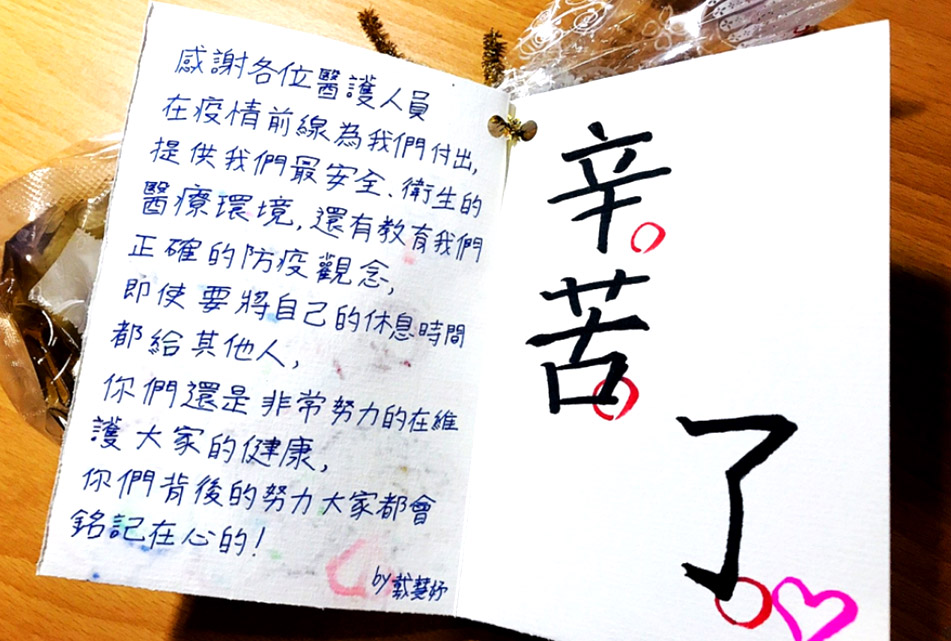 感謝各位醫護人員
在疫情前線為我們付出,
提供我們最安全、衛生的
醫療環境,還有教育我們
正確的防疫觀念,
即使要將自己的休息時間
都給其他人,
你們還是非常努力的在維
護大家的健康,
你們背後的努力大家都會
銘記在心的!
by 戴慧妤
辛
苦
了